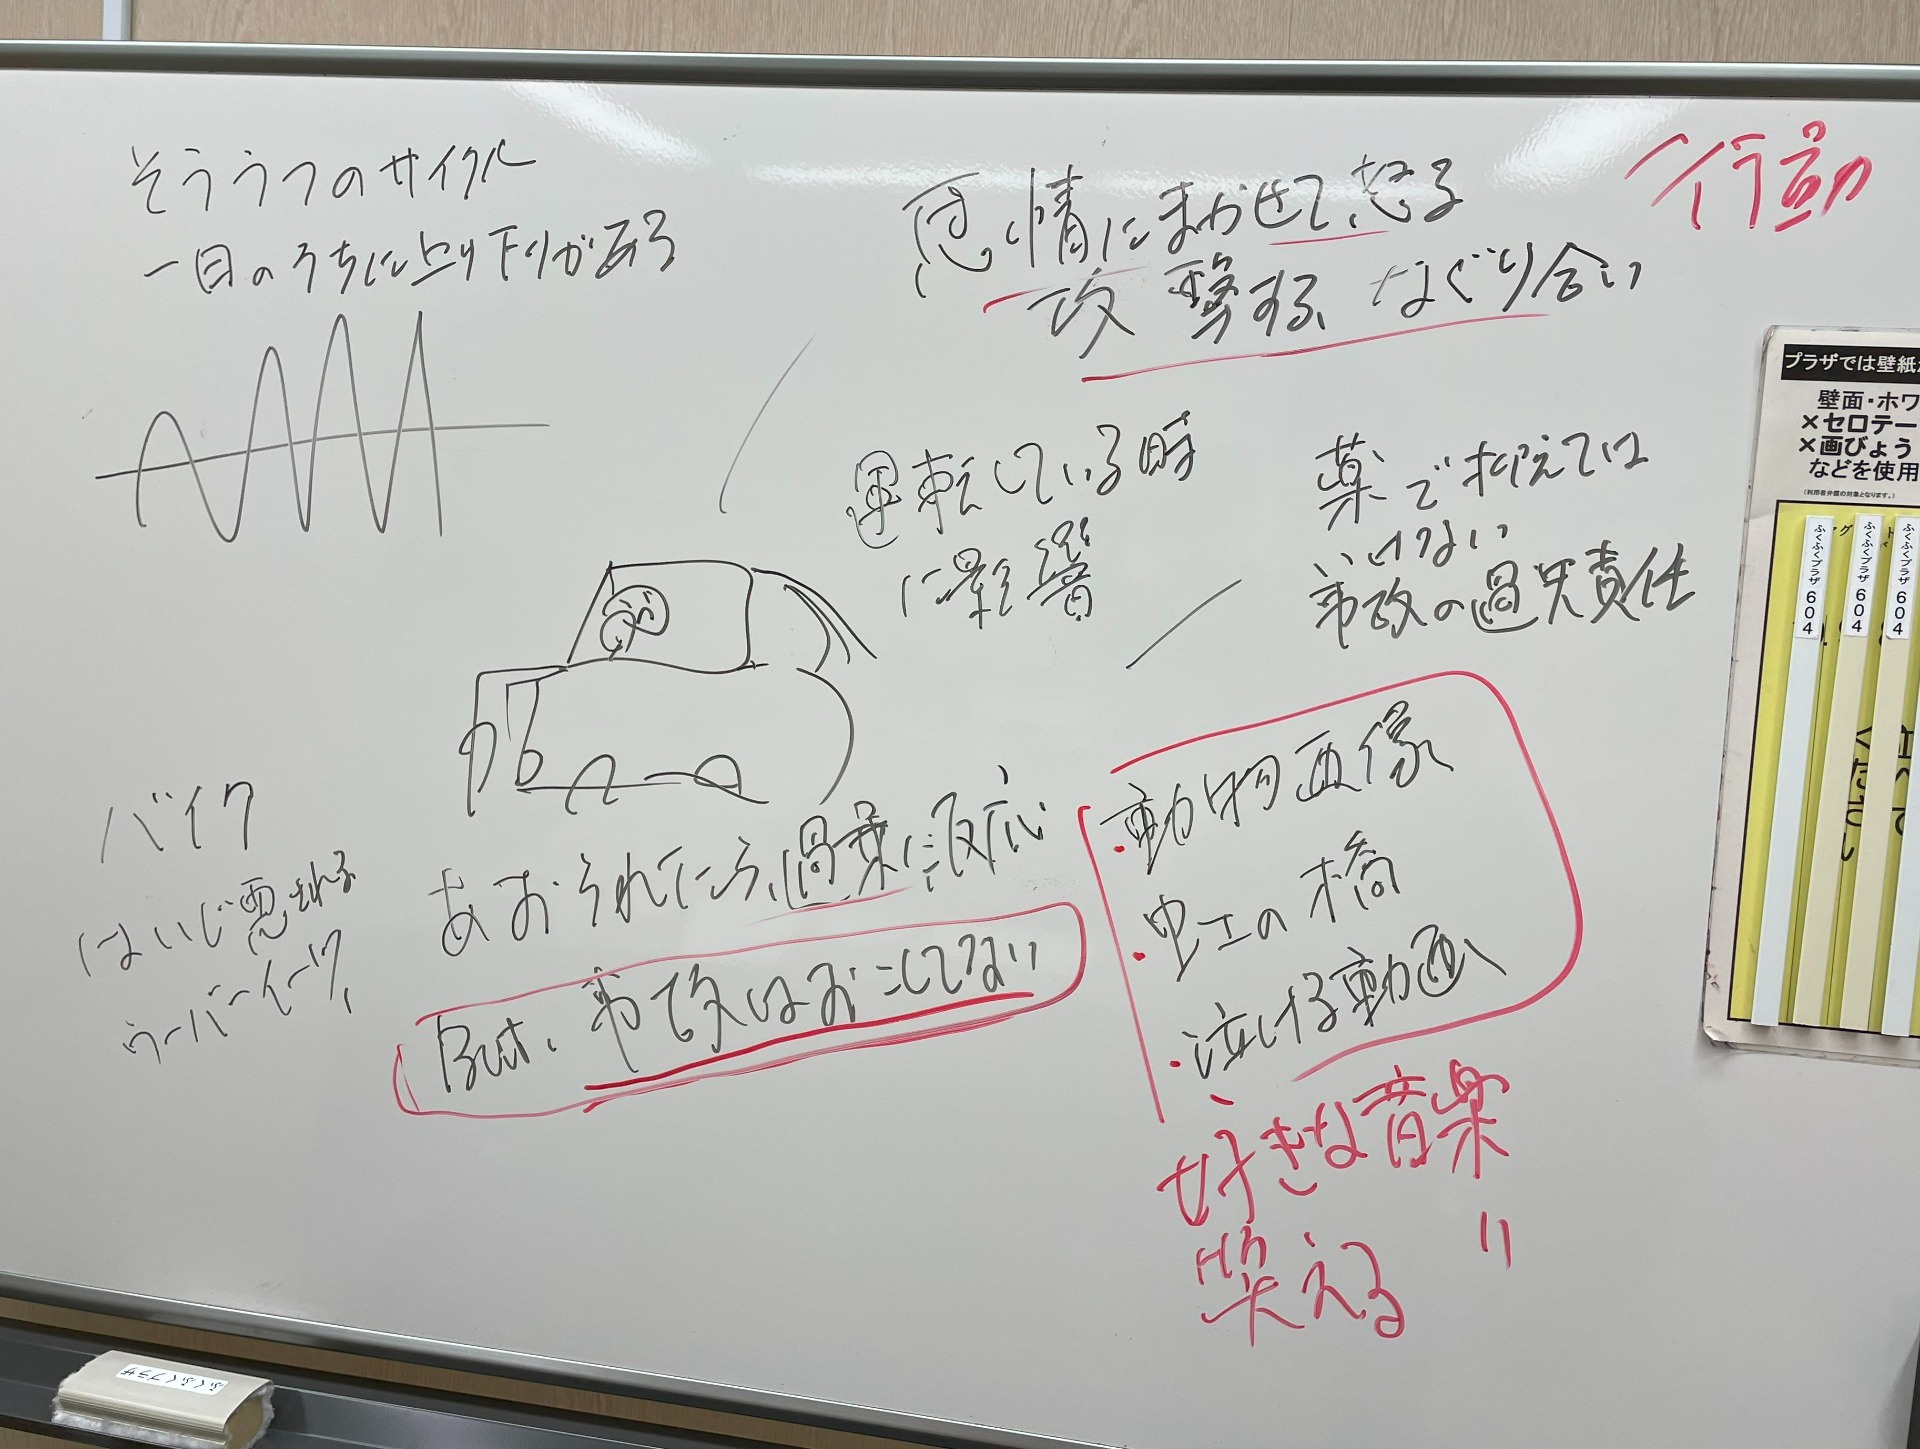 そううつのサイクル
一日のうちに上り下りがある
感情にまかせて、怒る
攻撃する、なぐり合い
行動
運転している時
に影響
薬で抑えては
いけない
事故の過失責任
バイク
ウーバーイーツ、
あおられたら、過剰に反応
But、事故はおこしてない
・動物画像、
・虹の橋
・泣ける動画、
好きな音楽
笑える 〃
プラザでは壁紙
壁面・ホワ
×セロテー
×画びょう
などを使用
(利用者弁償の対象となります。)
ふくふくプラザ604
ふくふくプラザ604
ふくふくプラザ604
ください
ふくふくプラザ